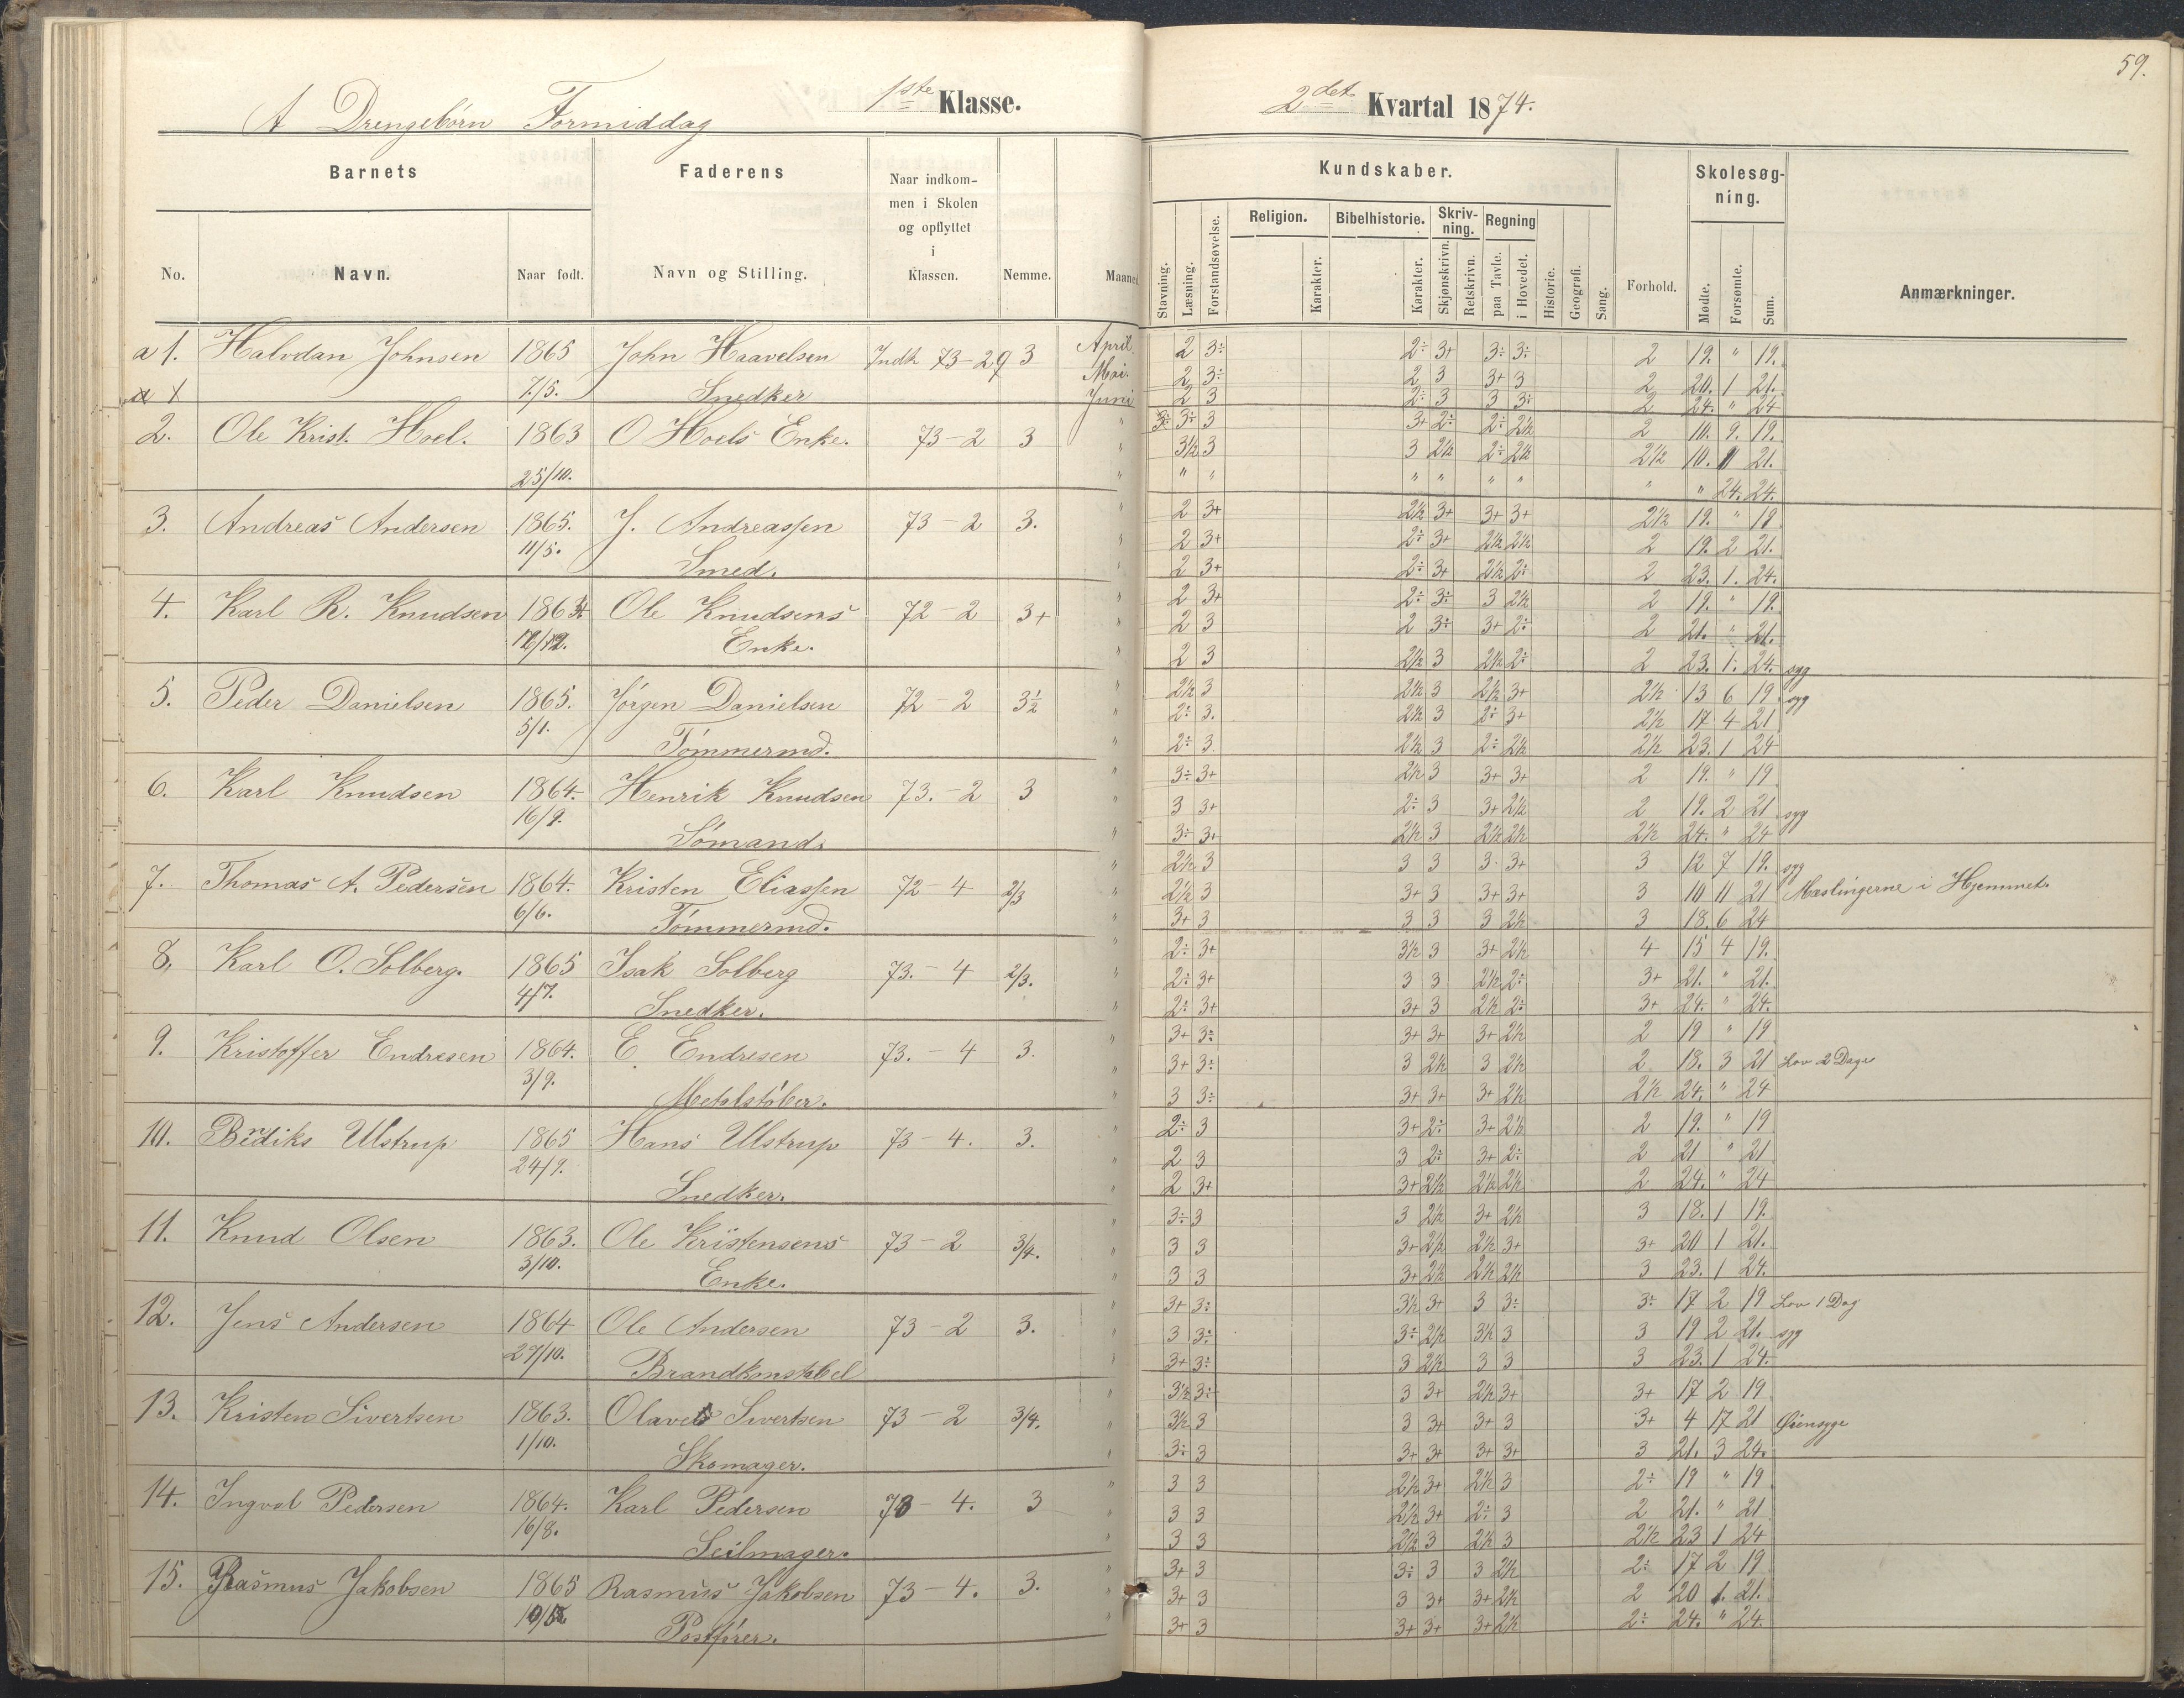 59.
A Drengebørn Formiddag 1ste Klasse. 2det Kvartal 1874.
Barnets Faderens Naar indkommen i Skolen og opflyttet i Klassen. Nemme. Maaned
No. Navn. Naar født. Navn og Stilling.
Kundskaber. Forhold. Skolesøgning. Anmærkninger.
Stavning. Læsning. Forstandsøvelse. Religion. Karakter. Bibelhistorie. Karakter. Skrivning. Skjønskrivn. Retskrivn. Regning paa Tavle. i Hovedet. Historie. Geografi. Sang. Mødte. Forsømte. Sum.
a 1. Halvdan Johnsen 1865 John Haavelsen Indk 73-29 3 April 2 3÷ 2÷ 3+ 3÷ 3÷ 2 19. " 19.
7/5. Snedker Mai. 2 3÷ 2 3 3+ 3 2 20. 1 21.
Juni 2 3 2÷ 3 3 3÷ 2 24. " 24
2. Ole Krist. Hoel. 1863 O Hoels Enke. 73-2 3 " 3÷ 3÷ 3 3+ 2÷ 2÷ 2½ 2 10. 9. 19.
" 3½ 3 3 2½ 2÷ 2½ 2½ 10. 11 21.
25/10. " " " " " " " " " 24. 24.
3. Andreas Andersen 1865. J. Andreassen 73-2 3. " 2 3+ 2½ 3+ 3+ 3+ 2½ 19. " 19
11/5. " 2 3+ 2÷ 3+ 2½ 2½ 2 19. 2 21.
Smed. " 2 3+ 2÷ 3+ 2½ 2÷ 2 23. 1. 24.
4. Karl R. Knudsen 1863 Ole Knudsens 72-2 3+ " 2 3+ 2÷ 3÷ 3 2½ 2 19. " 19.
Enke. " 2 3 2 3÷ 3+ 2÷ 2 21. " 21.
" 2 3 2½ 3 2½ 2÷ 2 23. 1. 24. syg
5. Peder Danielsen 1865. Jörgen Danielsen 72-2 3½ " 2½ 3 2½ 3 2½ 3+ 2½ 13 6 19 syg
5/1. " 2÷ 3. 2½ 3 2÷ 3+ 2½ 17 4 21
Tömmermd. " 2÷ 3. 2½ 3 2÷ 2½ 2½ 23. 1 24
6. Karl Knudsen 1864. Henrik Knudsen 73.-2 3 " 3÷ 3+ 2½ 3 3+ 3+ 2 19. " 19
16/9. " 3 3+ 2÷ 3 3+ 2½ 2 19. 2 21 syg
Sömand. 3÷ 3+ 2½ 3 2½ 2½ 2½ 24. " 24
7. Thomas A. Pedersen 1864. Kristen Eliassen 72-4 2/3 " 2½ 3 3 3 3 3+ 3 12 7 19. syg
6/6. " 2½ 3 3+ 3 3+ 3+ 3 10 11 21 Mæslingerne i Hjemmet.
Tömmermd. " 3+ 3 3 3 3 2½ 3 18. 6 24
8. Karl O. Solberg. 1865 Isak Solberg 73.-4 2/3. " 2÷ 3+ 3½ 3 3+ 2½ 4 15 4 19.
4/7. " 2÷ 3+ 3 3 2½ 2÷ 3+ 21. " 21.
Snedker. " 2÷ 3+ 3+ 3 2½ 2÷ 3+ 24. " 24.
9. Kristoffer Endresen 1864. E. Endresen 73.-4 3. " 3+ 3÷ 3+ 3+ 3+ 2½ 2 19 " 19
3/9. " 3+ 3÷ 3 2½ 3 2½ 2 18. 3 21 Lov 2 Dage
Metalstöber. " 3 3÷ 3+ 3+ 3+ 2½ 2½ 24. " 24
10. Bendiks Ulstrup 1865 Hans Ulstrup 73-4. 3. " 2÷ 3 3+ 2÷ 3+ 2½ 2 19. " 19
24/9. " 2 3 3 2÷ 3+ 2÷ 2 21 " 21
Snedker. " 2 3+ 3+ 2½ 2½ 2½ 2 24. " 24
11. Knud Olsen 1863. Ole Kristensens 73-2 3/4. " 3÷ 3 3 2½ 3+ 2½ 3 18. 1 19.
3/10. " 3 3 3+ 2½ 2½ 3+ 3+ 20 1 21.
Enke. " 3 3 3+ 2½ 2½ 2½ 3 23. 1 24.
12. Jens Andersen 1864 Ole Andersen 73-2 3. " 3+ 3÷ 3½ 3+ 3 3÷ 3÷ 17 2 19 Lov 1 Dag
27/10. " 3 3÷ 3÷ 2½ 3½ 3 3 19 2 21. syg
Brandkonstabel " 3+ 3÷ 3 2½ 3 3 3 23. 1 24.
13. Kristen Sivertsen 1863. Olaves Sivertsen 73-2 3/4. " 3½ 3÷ 3 3+ 2½ 3+ 3+ 17 2 19
1/10. " 3½ 3 3 3+ 3+ 3 3+ 4 17 21 Øiensyge
Skomager. " 3÷ 3 3+ 3+ 3+ 3+ 3 21. 3 24.
14. Ingval Pedersen 1864. Karl Pedersen 73-4. 3 " 3 3 2½ 3+ 2½ 3 2÷ 19 " 19
16/8. " 3 3 2½ 3+ 2÷ 3 2 21. " 21
Seilmager. " 3 3 2½ 3 2½ 3 2½ 23 1 24
15. Rasmus Jakobsen 1865 Rasmus Jakobsen 73-4. 3. " 3+ 3 3÷ 3 3 2½ 2÷ 17 2 19
" 3+ 3 3 3+ 3+ 2½ 2 20 1. 21.
Postförer. " 3+ 3 3+ 3+ 3+ 2½ 2÷ 24. " 24.